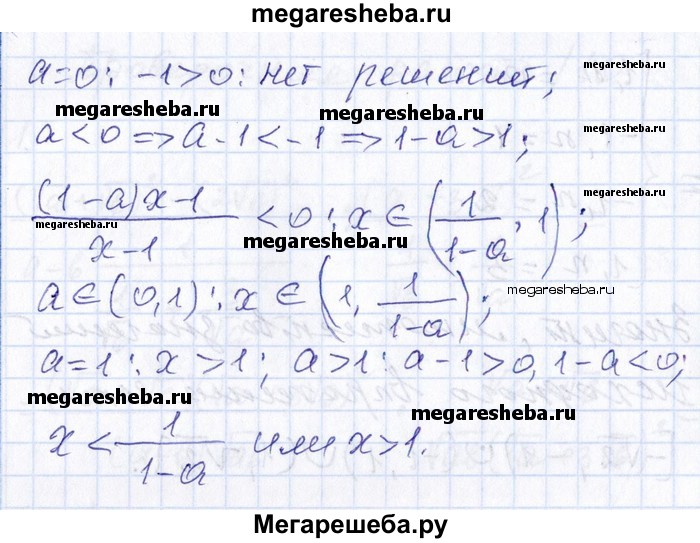 megaresheba.ru
a=0: -1>0: нет решений;
megaresheba.ru megaresheba.ru
a<0=>a-1<-1=>1-a>1;
((1-a)x-1)/(x-1) < 0: x ∈ (1/(1-a), 1);
megaresheba.ru megaresheba.ru megaresheba.ru
a∈(0,1): x ∈ (1, 1/(1-a));
megaresheba.ru
a=1: x>1; a>1: a-1>0, 1-a<0;
megaresheba.ru megaresheba.ru
x < 1/(1-a) или x>1.
Мегарешеба.ру